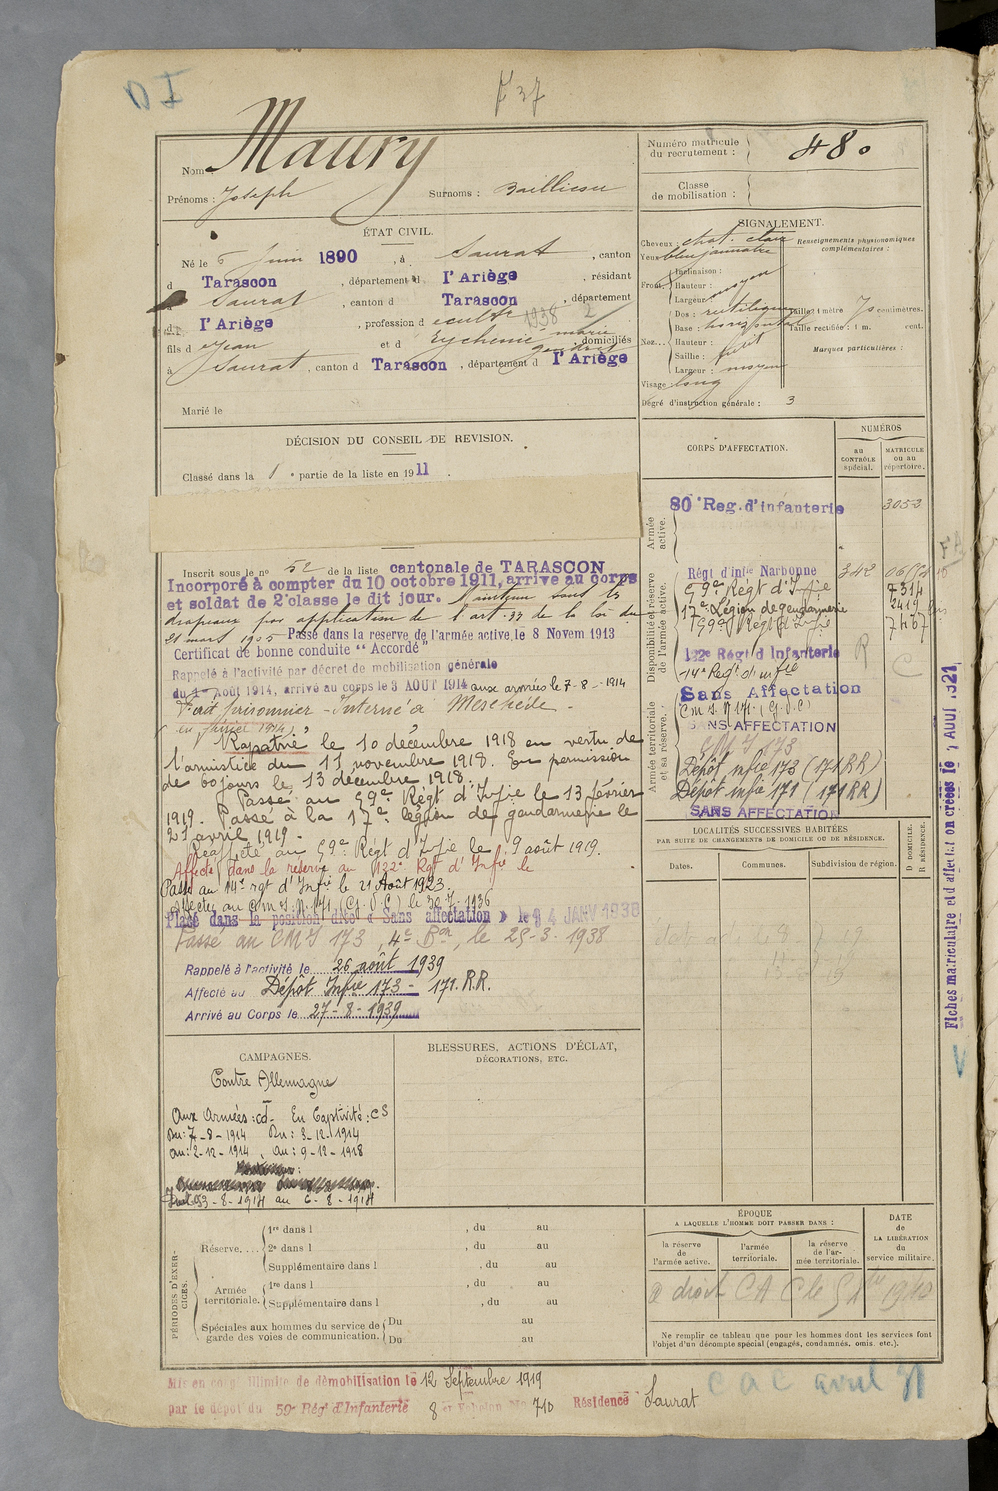 D I
F 37
Nom Maury
Prénoms : Joseph
Surnoms :
Numéro matricule du recrutement : 480
Classe de mobilisation :
ÉTAT CIVIL.
Né le 6 juin 1890, à Saurat, canton
d Tarascon, département d l'Ariège, résidant
à Saurat, canton d Tarascon, département
d l'Ariège, profession d
1938
fils d Jean et d Eychenne marie domiciliés
à Saurat, canton d Tarascon, département d l'Ariège
Marié le
SIGNALEMENT.
Cheveux : chat. clair
Yeux bleu jaunatre
Front Inclinaison :
Hauteur : moyen
Largeur :
Nez Dos : rectiligne
Base : horizontal
Hauteur :
Saillie : petit
Largeur : moyen
Visage : long
Degré d'instruction générale : 3
Renseignements physionomiques complémentaires :
Taille : 1 mètre 70 centimètres.
Taille rectifiée : 1 m. cent.
Marques particulières :
DÉCISION DU CONSEIL DE REVISION.
Classé dans la 1e partie de la liste en 1911.
Inscrit sous le no 52 de la liste cantonale de TARASCON
Incorporé à compter du 10 octobre 1911, arrivé au corps
et soldat de 2e classe le dit jour. Maintenu sous les
drapeaux par application de l'art. 33 de la loi du
21 mars 1905 Passé dans la reserve de l'armée active, le 8 Novem 1913
Certificat de bonne conduite "Accordé"
Rappelé à l'activité par décret de mobilisation générale
du 1er Août 1914, arrivé au corps le 3 AOUT 1914 aux armées le 7-8-1914
Fait prisonnier - Interné à Meschede -
Rapatrié le 10 décembre 1918 en vertu de
l'armistice du 11 novembre 1918. En permission
de 60 jours le 13 décembre 1918.
Passé au 59e Régt d'Infie le 13 février
1919. Passé à la 17e légion de gendarmerie le
21 avril 1919.
Réaffecté au 59e Régt d'Infie le 9 août 1919.
Affecté dans la réserve au 122e Rgt d'Infie le
Passé au 14e rgt d'Infie le 21 Août 1923
Affecté au C.m.I. N. 171 (G.V.C) le 30-7-1936
Placé dans la position dite « Sans affectation » le 14 JANV 1938
Passé au CMI 173, 4e Bon, le 25-3-1938
Rappelé à l'activité le 26 août 1939
Affecté au Dépôt Infie 173 - 171. R.R.
Arrivé au Corps le 27-8-1939
CORPS D'AFFECTATION.
NUMÉROS
au CONTRÔLE spécial.
MATRICULE ou au répertoire.
Armée active.
80e Reg. d'infanterie 3053
Disponibilité et réserve de l'armée active.
Régt d'infie Narbonne 342
59e Régt d'Infie
17e Légion de gendarmerie
59e Régt d'Infie
122e Régt d'Infanterie R
14e Régt d'infie C
Armée territoriale et sa réserve.
Sans Affectation
Cm I. N 171 (G.V.C)
SANS AFFECTATION
CMI 173
Dépôt infie 173 (171 RR)
Dépôt infie 171 (171 RR)
SANS AFFECTATION
LOCALITÉS SUCCESSIVES HABITÉES
PAR SUITE DE CHANGEMENTS DE DOMICILE OU DE RÉSIDENCE.
Dates. Communes. Subdivision de région.
D DOMICILE.
R RÉSIDENCE.
Fiches matriculaire et d'affectation créées le AOUT 1921
V
CAMPAGNES.
Contre Allemagne
Aux Armées : cd. En Captivité : CS
Du : 7-8-1914 Du : 3-12-1914
au : 2-12-1914, au : 9-12-1918
3-8-1914 au 6-8-1914
BLESSURES, ACTIONS D'ÉCLAT,
DÉCORATIONS, ETC.
PÉRIODES D'EXERCICES.
Réserve.... 1re dans l , du au
2e dans l , du au
Supplémentaire dans l , du au
Armée territoriale. 1re dans l , du au
Supplémentaire dans l , du au
Spéciales aux hommes du service de garde des voies de communication. Du au
Du au
ÉPOQUE
A LAQUELLE L'HOMME DOIT PASSER DANS :
la réserve de l'armée active.
l'armée territoriale.
la réserve de l'armée territoriale.
DATE de LA LIBÉRATION du service militaire.
a droit CA C
Ne remplir ce tableau que pour les hommes dont les services font
l'objet d'un décompte spécial (engagés, condamnés, omis, etc.).
Mis en congé illimité de démobilisation le 12 Septembre 1919
par le dépôt du 59e Rég. d'Infanterie 8e No 710 Résidence Saurat
CAC avril 31